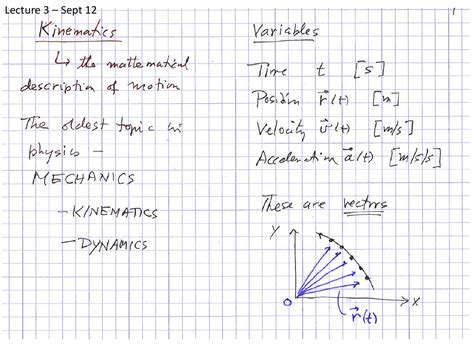 Lecture 3 – Sept 12
1
Kinematics
↳ the mathematical
description of motion
The oldest topic in
physics –
MECHANICS
– KINEMATICS
– DYNAMICS
Variables
Time t [s]
Position r⃗(t) [m]
Velocity v⃗(t) [m/s]
Acceleration a⃗(t) [m/s/s]
These are vectors
Y
O
X
r⃗(t)